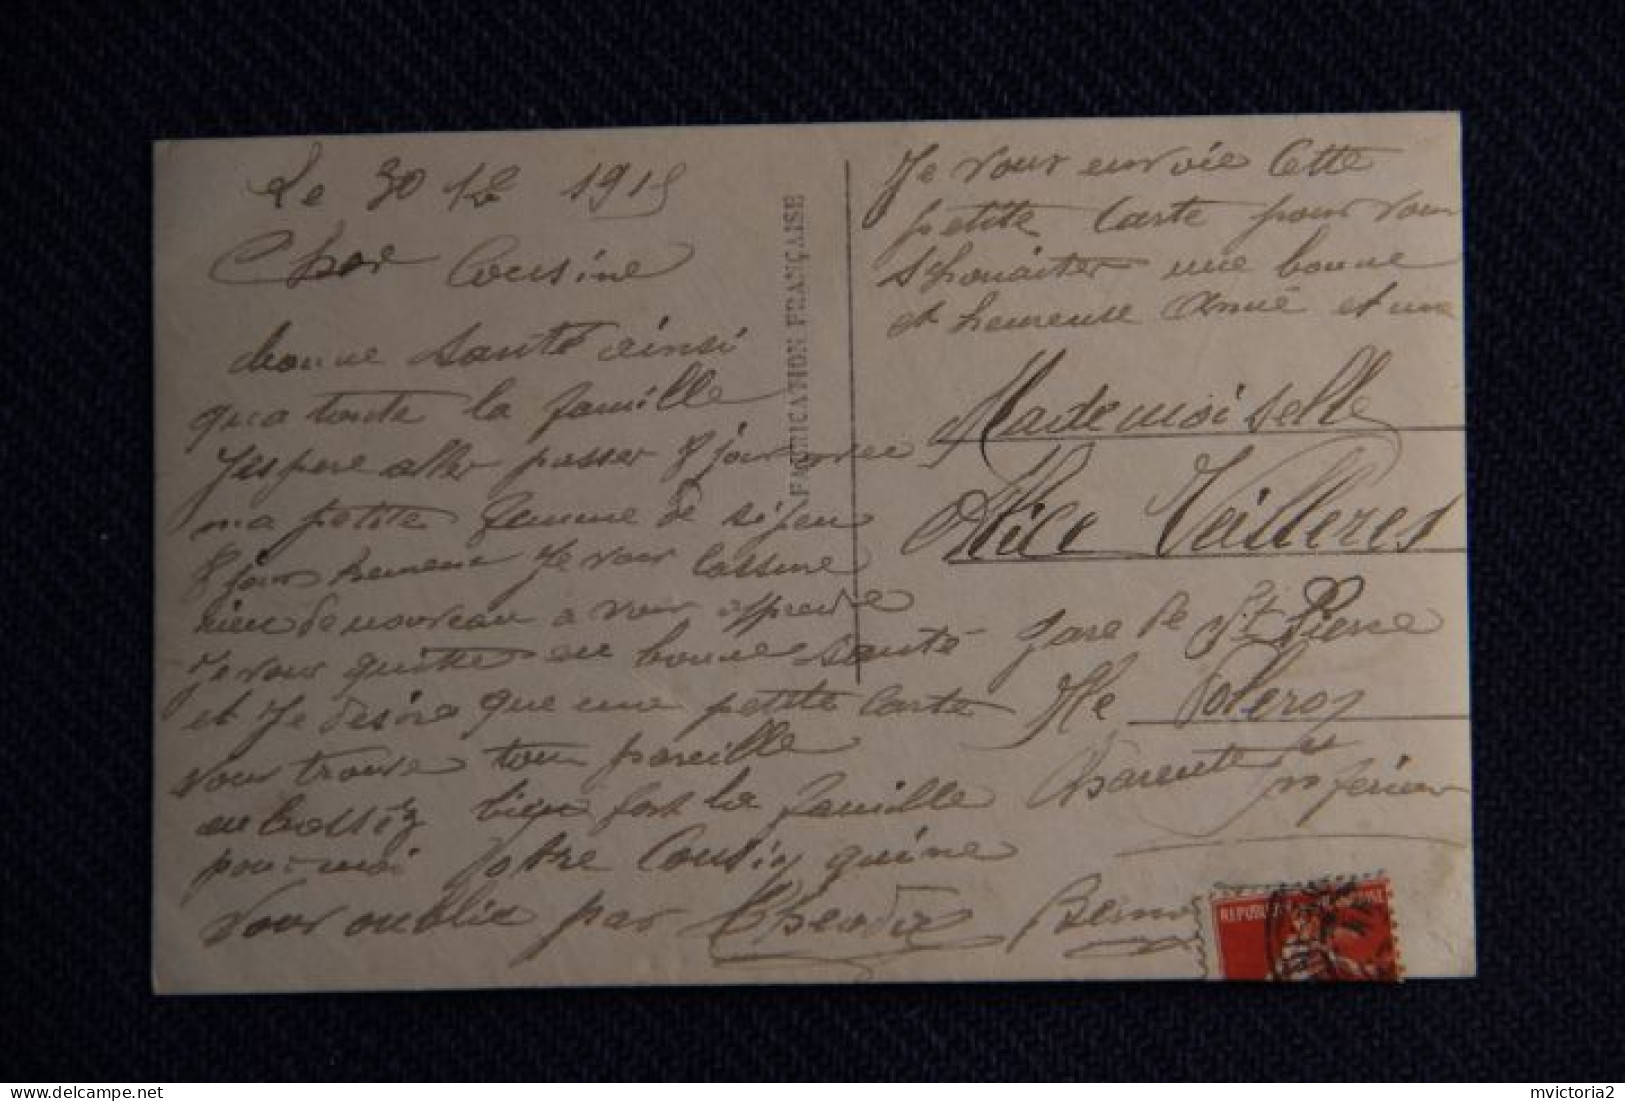 Le 30 12 1915
Cher Cousine
bonne Santé ainsi
qua toute la famille
J'espere aller passer 8 jour avec
ma petite femme de
8 jour Je vour
rien de nouveau a vour apprendre
Je vour quitte en bonne santé
et Je desire que une petite Carte
vour trouve tou pareille
embrassez bien fort la famille
pour moi Votre Cousin qui ne
vour oublie par
FABRICATION FRANÇAISE
Je vour envoie Cette
petite Carte pour vour
Shouaiter une bonne
et heureuse Anné et une
Mademoiselle
Alice Veilleres
Gare de St Pierre
Ile Doleron
Charente
Inferieur
REPUBLIQUE
mvictoria2